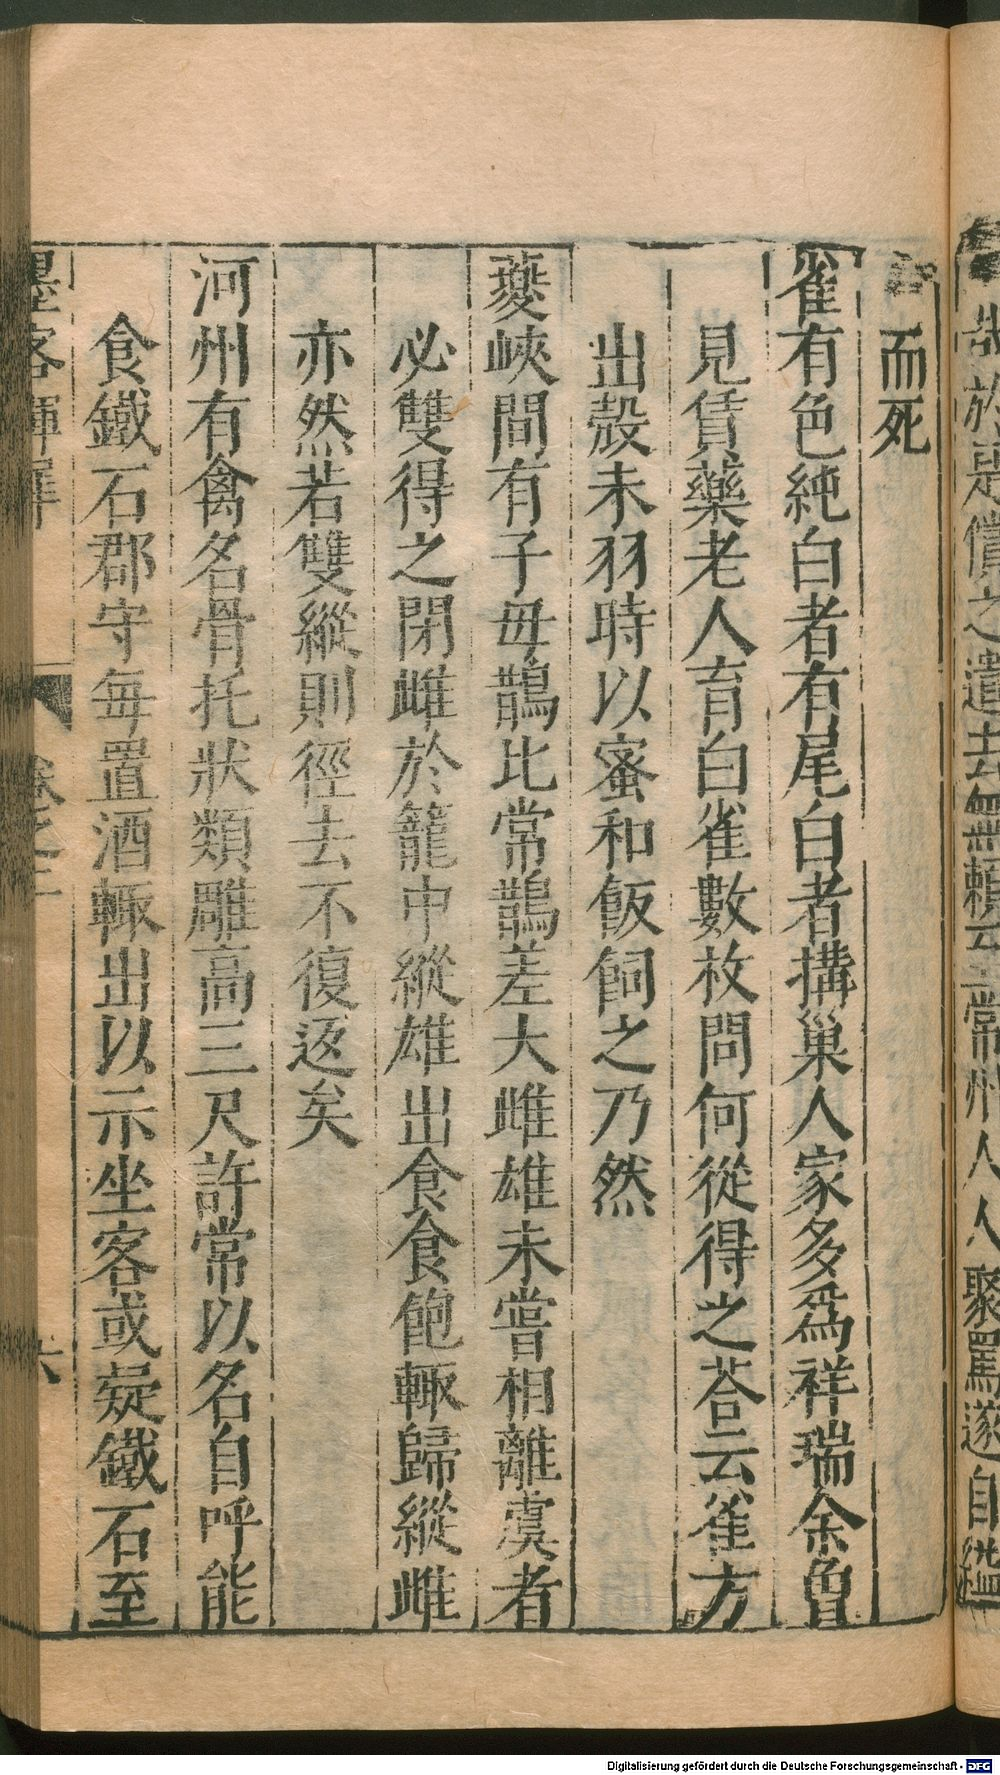 哉於是償之遣去無賴子常州人人聚罵遂自縊
而死
雀有色純白者有尾白者搆巢人家多爲祥瑞余曾
見賃藥老人育白雀數枚問何從得之荅云雀方
出殼未羽時以蜜和飯飼之乃然
夔峽間有子母鵲比常鵲差大雌雄未嘗相離虞者
必雙得之閉雌於籠中縱雄出食食飽輙歸縱雌
亦然若雙縱則徑去不復返矣
河州有禽名骨托狀類雕高三尺許常以名自呼能
食鐵石郡守每置酒輙出以示坐客或疑鐵石至
墨客揮犀
卷之二
六
Digitalisierung gefördert durch die Deutsche Forschungsgemeinschaft - DFG